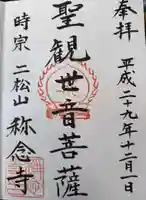 奉拝
平成二十九年十二月一日
聖観世音菩薩
時宗 二松山 称念寺